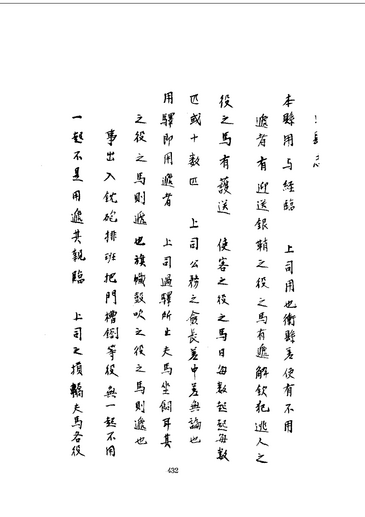 本縣用与經臨　上司用也衝縣差使有不用
遞者有迎送銀鞘之役之馬有遞解欽犯逃人之
役之馬有護送　使客之役之馬日每數起起每數
匹或十數匹　上司公務之僉長差中差無論也
用驛即用遞者　上司過驛所出夫馬坐餇耳其
之役之馬則遞也旗幟鼓吹之役之馬則遞也
事出入銃砲排班把門擡倒等役無一起不用
一起不是用遞其親臨　上司之損轎夫馬各役
432